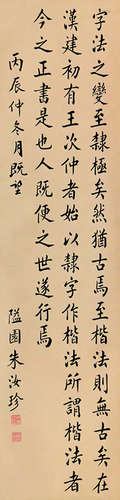 字法之變至隸極矣然猶古焉至楷法則無古矣在
漢建初有王次仲者始以隸字作楷法所謂楷法者
今之正書是也人既便之世遂行焉
丙辰仲冬月既望
隘園朱汝珍